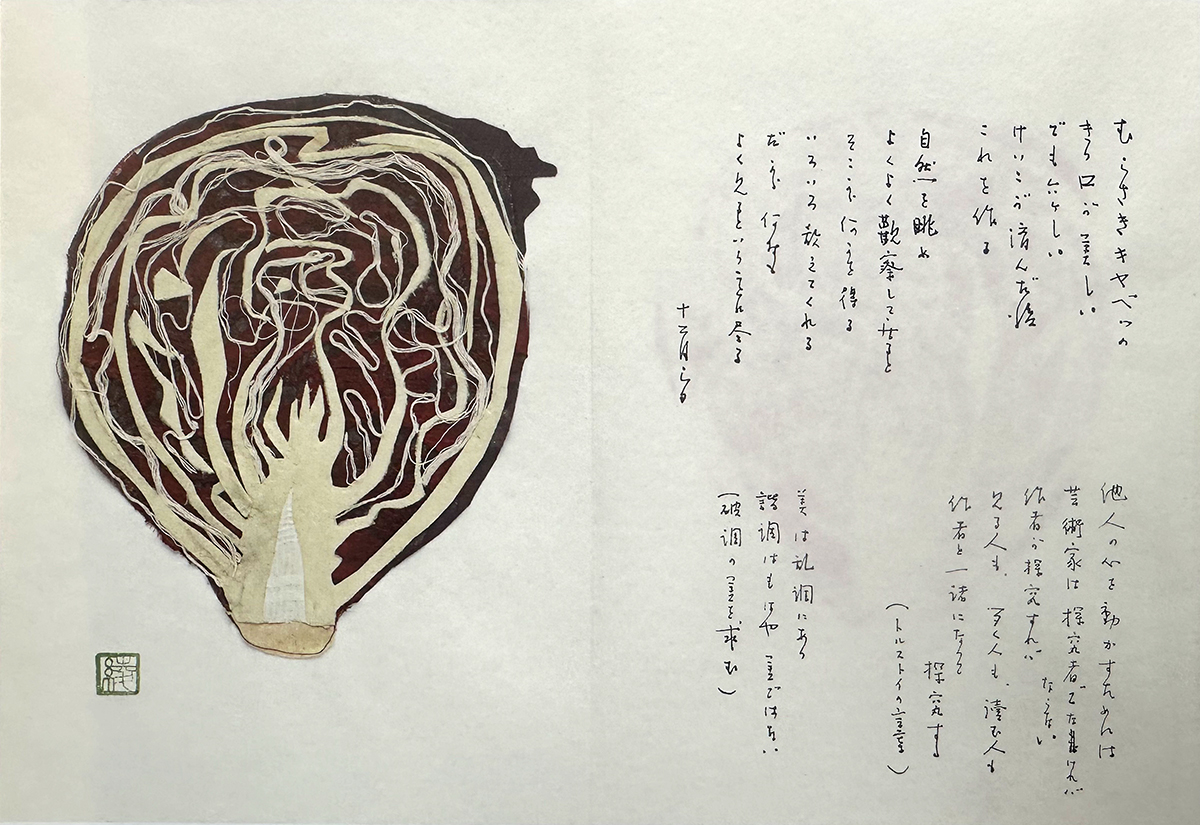 むらさきキャベツの
きり口が美しい
でも六ヶしい
けいこが済んだ後
これを作る
自然を眺め
よくよく觀察して居ると
そこから何かを得る
いろいろ教えてくれる
だから何でも
よく見るということに尽る
十二月
他人の心を動かすためには
芸術家は探究者でなければ
作者が探究すれば
ならない
見る人も、聞く人も、讀む人も
作者と一諸になって
探究する
(トルストイの言葉)
美は乱調にあり
諧調はもはや美ではない
(破調の美を求む)
綾